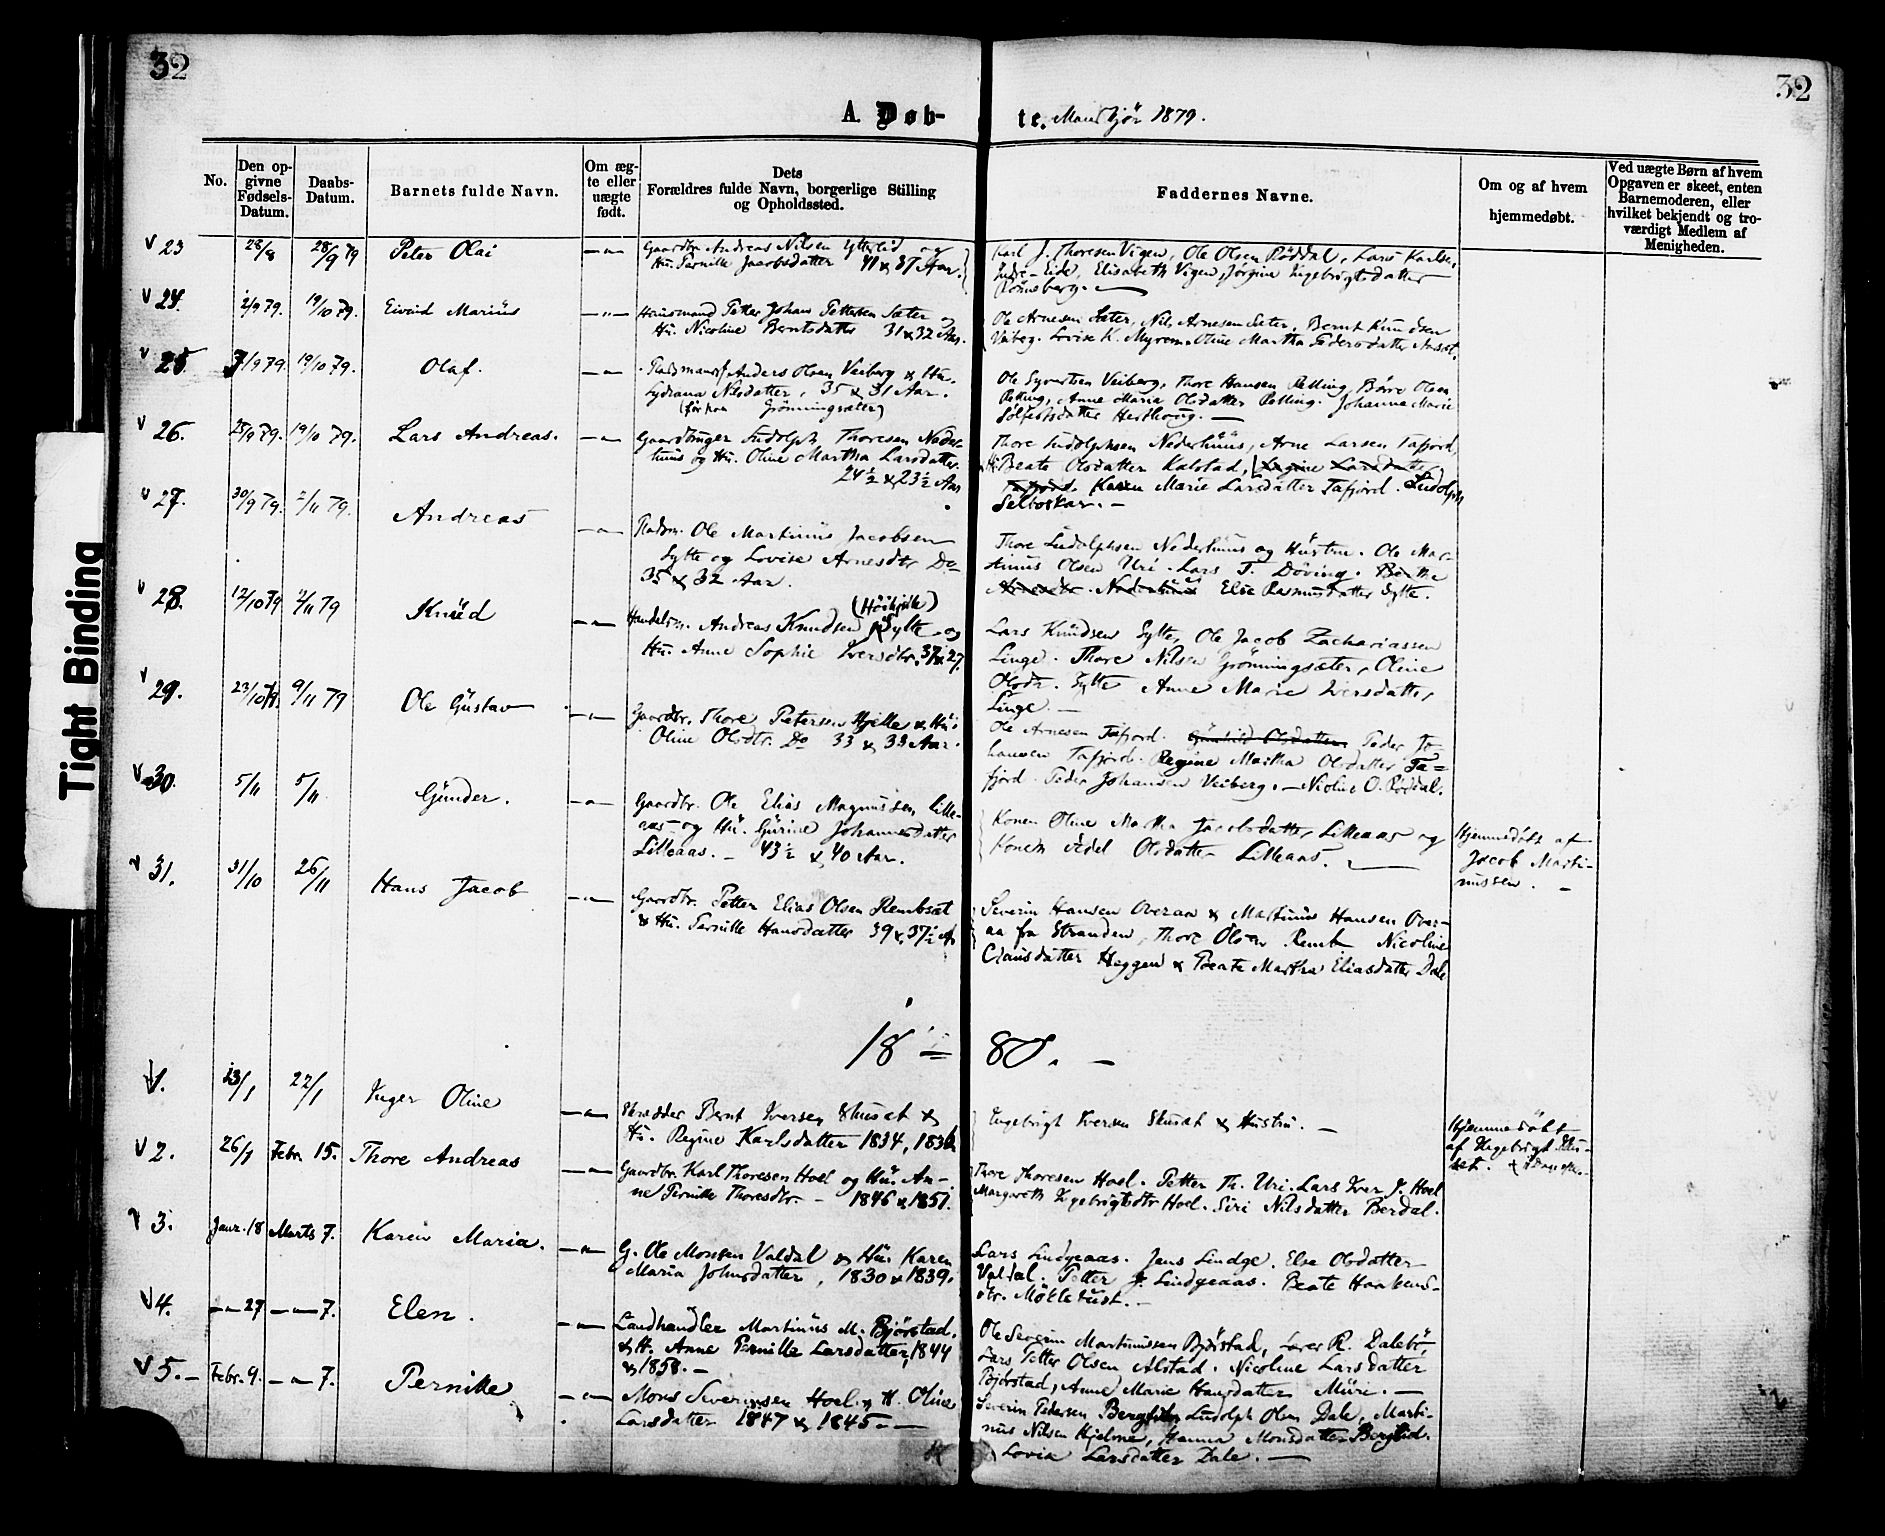 32
32
A. Døb-
te. Mandkjön 1879.
No.
Den op-
givne
Fødsels-
Datum.
Daabs-
Datum.
Barnets fulde Navn.
Om æg-
te eller
uægte
født.
Dets
Forældres fulde Navn, borgerlige Stilling
og Opholdssted.
Faddernes Navne.
Om og af hvem
hjemmedøbt.
Ved uægte Børn af hvem
Opgaven er skeet, enten
Barnemoderen, eller
hvilket bekjendt og tro-
værdigt Medlem af
Menigheden.
23 28/8 28/9 79 Peter Olai — " —
Gaardbr. Andreas Nilsen Ytterlid og
Hu. Pernille Jacobsdatter 41 & 37 Aar.
Karl J. Thoresen Vigen, Ole Olsen Röddal, Lars Karlsen
Indre-Eide, Elisabeth Vigen, Jörgine Ingebrigtsdatter
Rönneberg.
24. 2/9 79. 19/10 79. Eivind Marius — " —
Huusmand Petter Johan Pettersen Sæter og
Hu. Nicoline Berntsdatter 31 & 32 Aar.
Ole Arnesen Sæter, Nils Arnesen Sæter, Bernt Knudsen
Veibeg. Lovise K. Myrem. Oline Martha Pedersdatter
25. 7/9 79. 19/10 79. Olaf. — " —
Pladsmand Anders Olsen Veiberg & Hu.
Lydiana Nilsdatter, 35 & 31 Aar.
(för paa Grönningsæter)
Ole Syvertsen Veiberg, Thore Hansen Relling, Börre Olsen
Relling, Anne Maria Olsdatter Relling. Johanna Marie
Sölfestsdatter Herthoug. —
26. 28/9 79. 19/10 79. Lars Andreas. — " —
Gaardbruger Ludolph Thoresen Neder-
huus og Hu. Oline Martha Larsdatter.
24½ & 23½ Aar
Thore Ludolphsen Nederhuus, Arne Larsen Tafjord,
Beate Olsdatter Kalstad, Regine Larsdatter
Tafjord. Karen Marie Larsdatter Tafjord. Ludolph
Selboskar. —
27. 30/9 79. 2/11 79. Andreas — " —
Pladsm. Ole Martinus Jacobsen
Sylte og Lovise Arnesdtr Do
35 & 32 Aar.
Thore Ludolphsen Nederhuus og Hustru. Ole Mar-
tinus Olsen Uri. Lars T. Döving. Berthe
Arnesdtr. Nederhuus Else Rasmusdatter Sylte.
28. 12/10 79 2/11 79 Knud — " —
(Höikjelle)
Handelsm. Andreas Knudsen Sylte og
Hu. Anne Sophie Iversdtr. 37 & 27.
Lars Knudsen Sylte, Ole Jacob Zachariassen
Linge. Thore Nilsen Grönningsæter, Oline
Olsdtr. Sylte Anne Marie Iversdatter,
Linge. —
29. 23/10 79. 9/11 79 Ole Gustav — " —
Gaardbr. Thore Petersen Hjelle & Hu:
Oline Olsdtr. Do 33 & 33 Aar.
Ole Arnesen Tafjord. Gunhild Olsdatter Peder Jo-
hansen Tafjord. Regine Martha Olsdatter Ta=
fjord. Peder Johansen Veiberg. — Nicoline O. Röddal.
30. 5/11 5/11 Gunder. — " —
Gaardbr. Ole Elias Magnussen Lille-
aas og Hu. Gurine Johannesdatter
Lilleaas. — 43½ & 40 Aar.
Konen Oline Martha Jacobsdatter Lilleaas og
Konen Adel Olsdatter Lilleaas.
Hjemmedöbt af
Jacob Marti-
nussen. —
31. 31/10 26/11 Hans Jacob — " —
Gaardbr. Petter Elias Olsen Rembsæt
& Hu. Pernille Hansdatter 39 & 37½ A
Severin Hansen Overaa & Martinus Hansen Over-
aa fra Stranden, Thore Olsen Remb Nicoline
Clausdatter Heggen & Beate Martha Eliasdatter Dale
18 = 80. —
1. 13/1 22/1 Inger Oline — " —
Skrædder Bernt Iversen Skusæt &
Hu. Regine Karlsdatter 1834, 1836
Ingebrigt Iversen Skusæt & Hustru. —
Hjemmedöbt
af Ingebrigt Sku-
sæt.
2. 26/1 Febr. 15. Thore Andreas — " —
Gaardbr. Karl Thoresen Hoel og Hu. An-
ne Pernille Thoresdtr. — 1846 & 1851.
Thore Thoresen Hoel. Petter Th. Uri. Lars Iver J. Hoel
Margareth Ingebrigtsdtr Hoel. Siri Nilsdatter Berdal.
3. Janr. 18 Marts 7. Karen Maria. — " —
G. Ole Monsen Valdal & Hu. Karen
Maria Johnsdatter, 1830 & 1839.
Lars Lindgeaas. Jens Lindge. Else Olsdatter
Valdal. Petter J. Lindgeaas. Beate Haakens-
dtr. Mökletust. —
4. — " — 27 — " — 7. Elen. — " —
Landhandler Martinus M. Björstad.
& H. Anne Pernille Larsdatter 1844
& 1858. —
Ole Severin Martinussen Björstad, Lars R. Dalebö,
Lars Petter Olsen Alstad. Nicoline Larsdatter
Björstad, Anne Marie Hansdatter Muri. —
5. — Febr. 9. — " — 7. Pernille — " —
Mons Severinsen Hoel & H. Oline
Larsdatter 1847 & 1845. —
Severin Pedersen Berglid, Ludolph Olsen Dale, Marti-
nus Nilsen Hjelme, Hanna Monsdatter Berglid.
Lovia Larsdatter Dale. —
Tight Binding